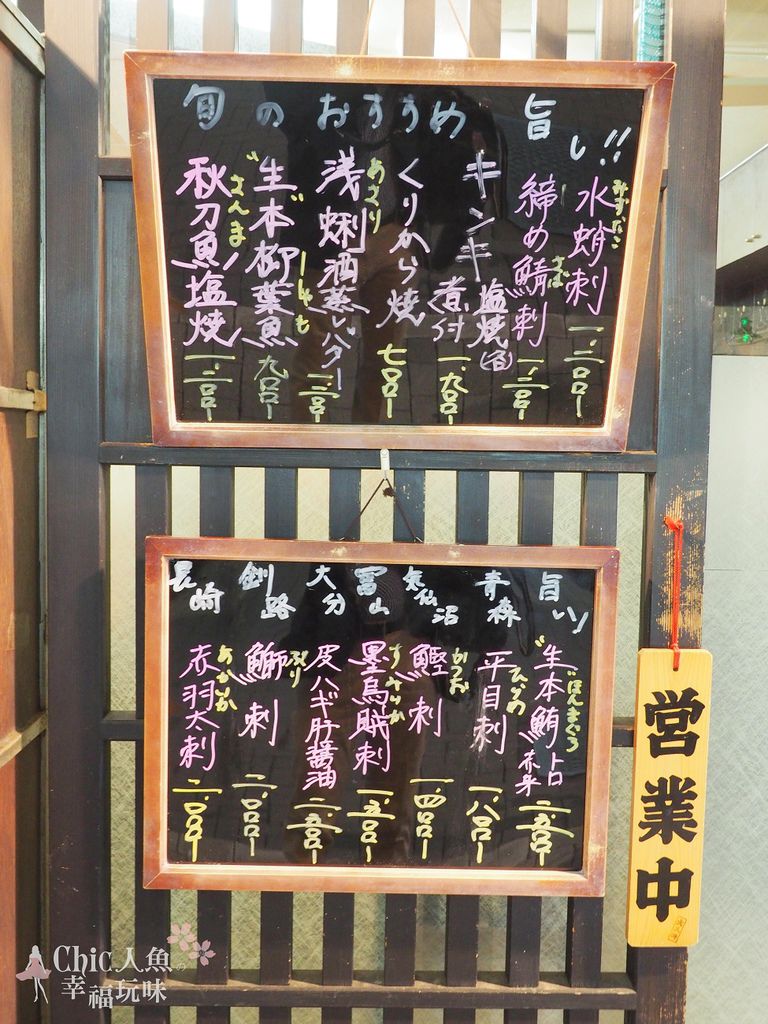 旬のおすすめ 旨い!!
水蛸刺 みずだこ 一、二〇〇ー
締め鯖刺 さば 一、三〇〇ー
キンキ 塩焼 煮付 (各) 一、九〇〇ー
くりから焼 七〇〇ー
浅蜊酒蒸しバター あさり 一、三〇〇ー
"生"本柳葉魚 ししゃも 九〇〇ー
秋刀魚塩焼 さんま 一、二〇〇ー
旨いッ
"生本鮪 トロ 赤身 ほんまぐろ 二、五〇〇ー
青森 平目刺 ひらめ 一、八〇〇ー
気仙沼 鰹刺 かつお 一、四〇〇ー
富山 墨烏賊刺 すみいか 一、五〇〇ー
大分 皮ハギ肝醤油 二、五〇〇ー
釧路 鰤刺 ぶり 二、〇〇〇ー
長崎 赤羽太刺 あかはた 二、〇〇〇ー
営業中
Chic人魚の
幸福玩味